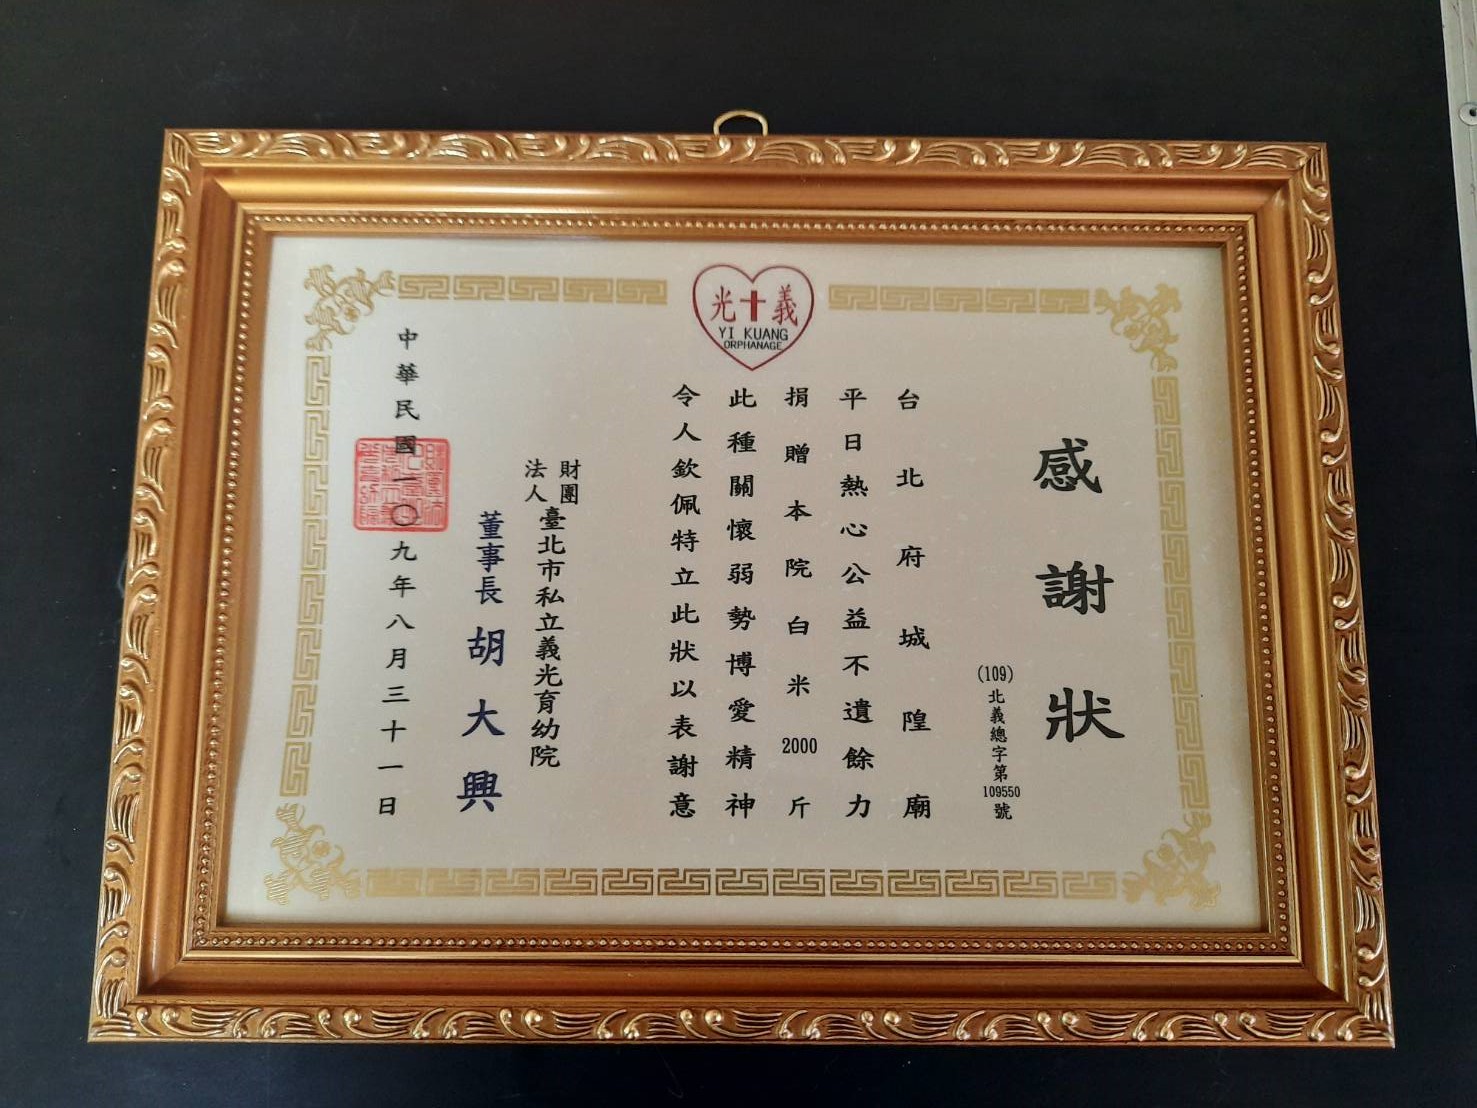 光十義
YI KUANG
ORPHANAGE
感謝狀
(109)北義總字第109550號
台北府城隍廟
平日熱心公益不遺餘力
捐贈本院白米2000斤
此種關懷弱勢博愛精神
令人欽佩特立此狀以表謝意
財團法人臺北市私立義光育幼院
董事長 胡大興
中華民國一〇九年八月三十一日